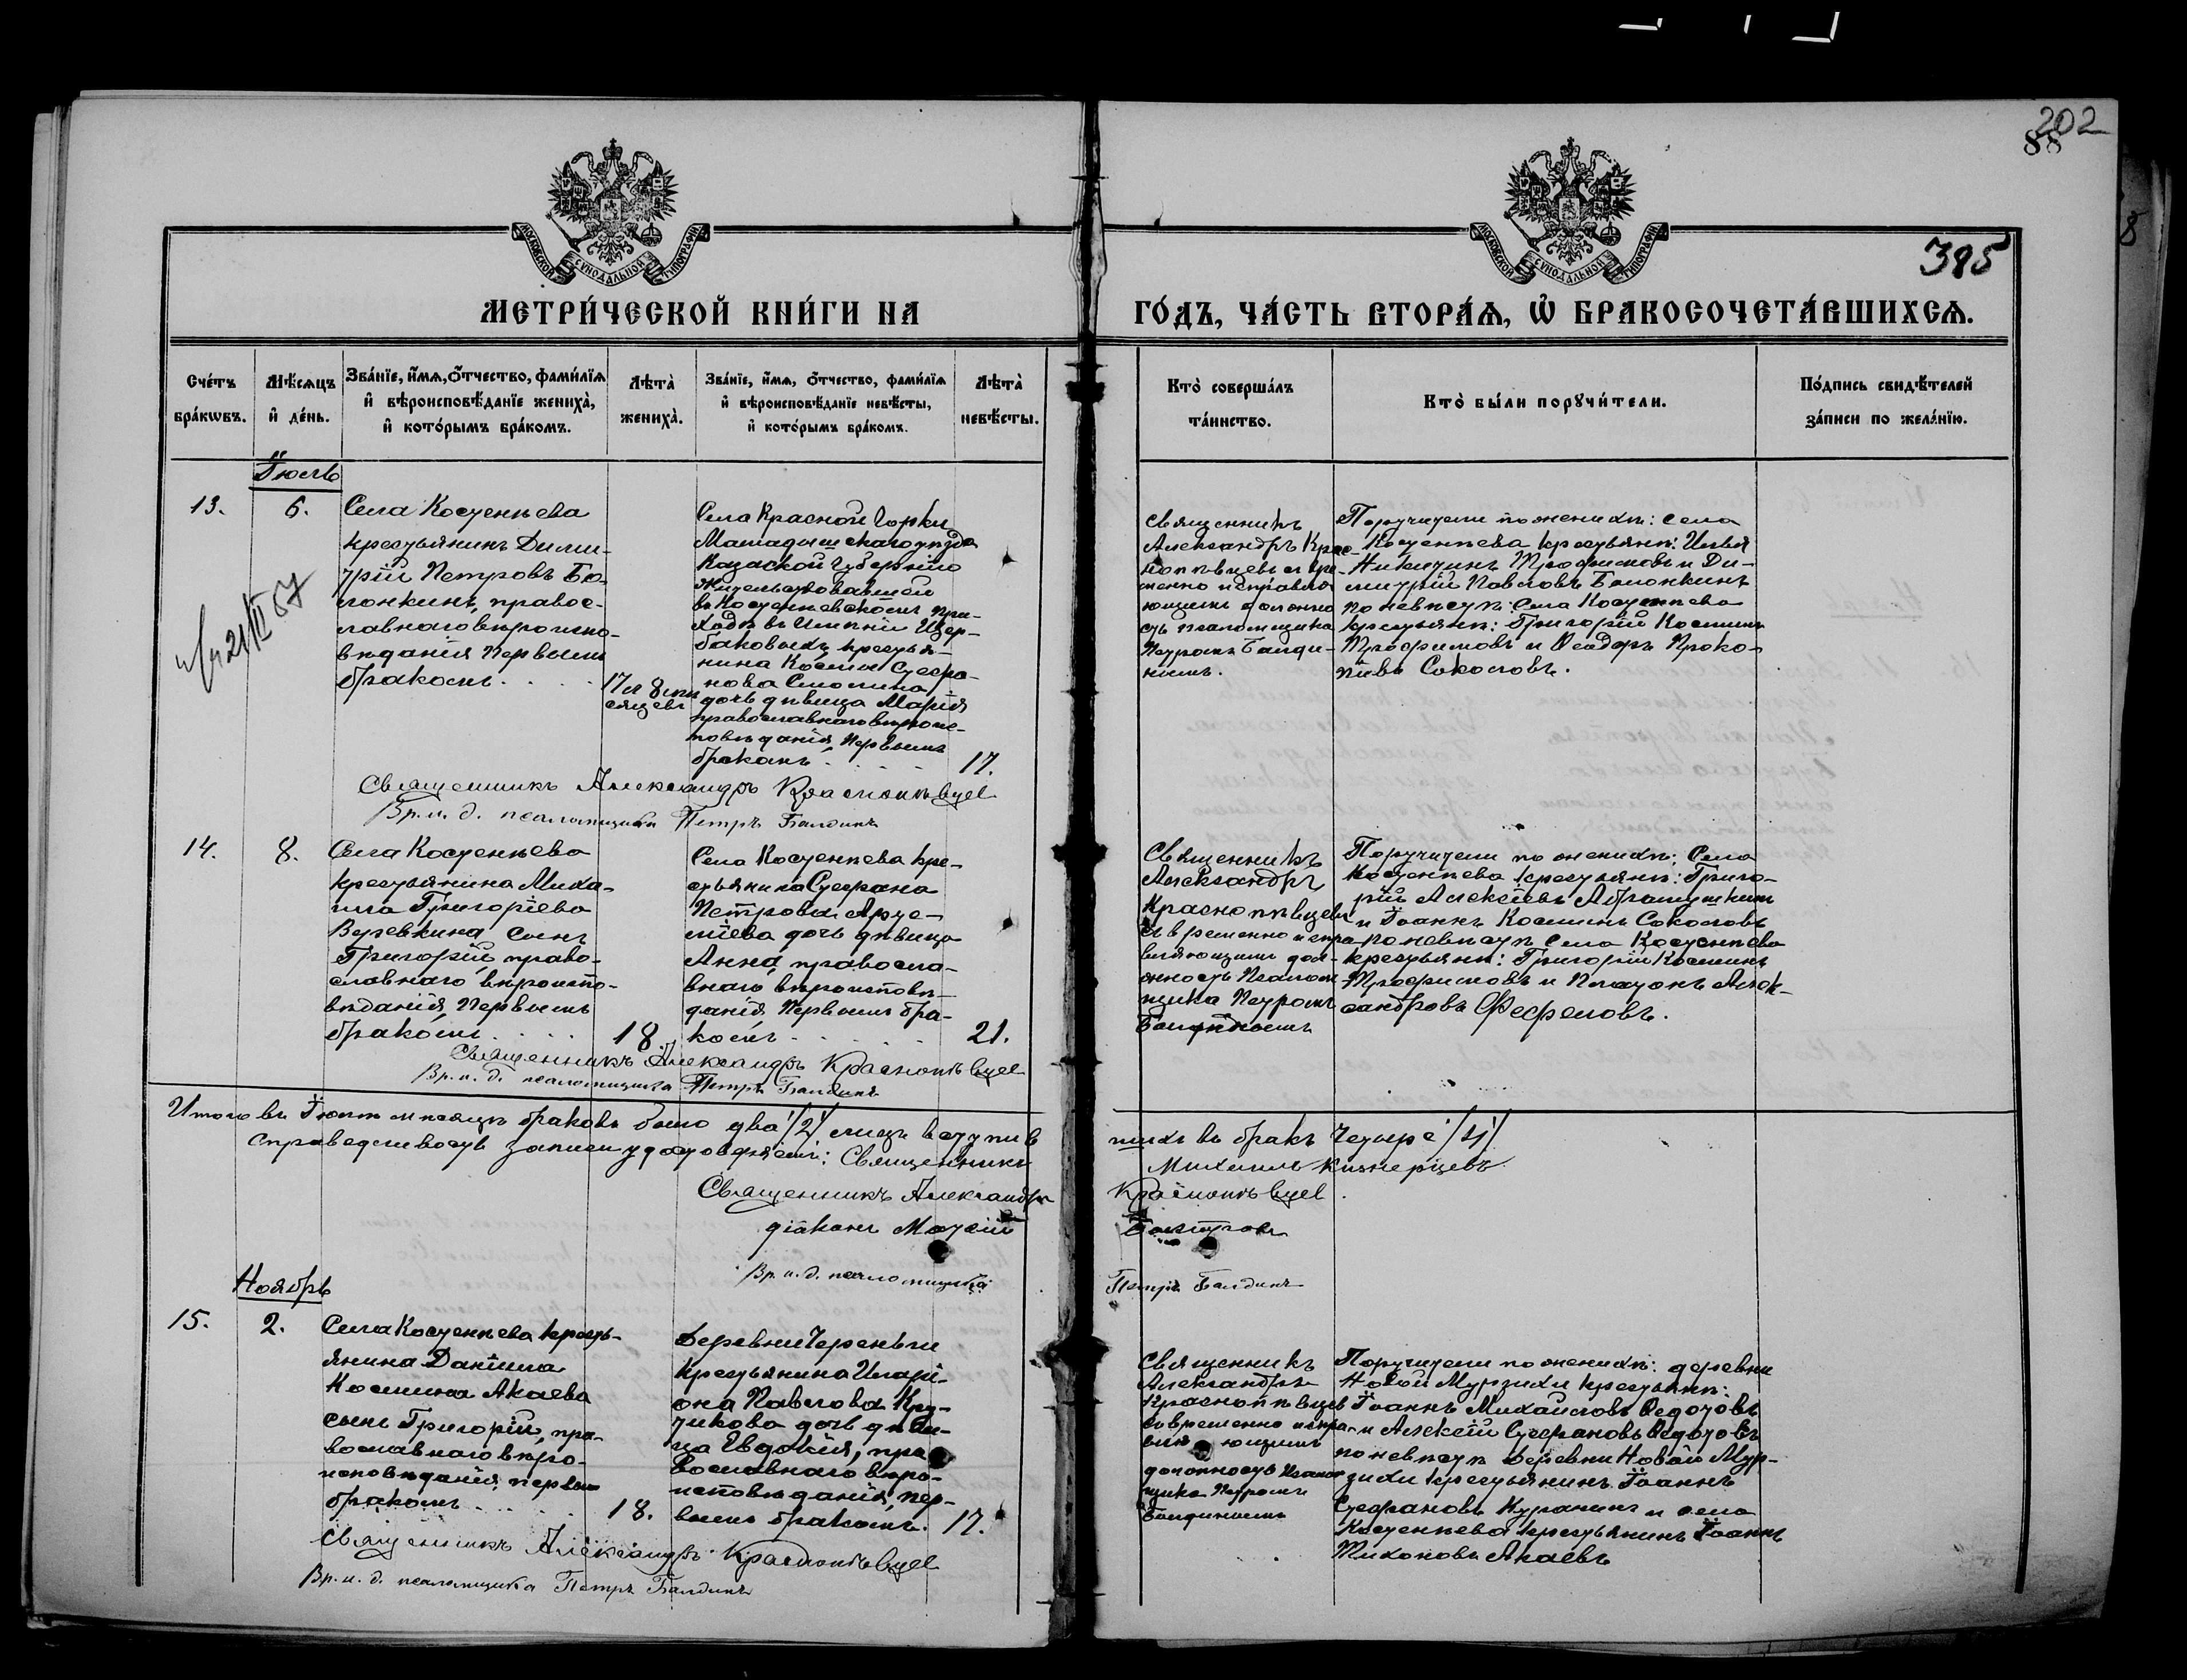 202
88
8
385
МОСКОВСКОЙ СѴНОДАЛЬНОЙ ТИПОГРАФІИ
МОСКОВСКОЙ СѴНОДАЛЬНОЙ ТИПОГРАФІИ
МЕТРИ́ЧЕСКОЙ КНИ́ГИ НА
ГО́ДЪ, ЧА́СТЬ ВТОРА́Ѧ, Ѽ БРАКОСОЧЕТА́ВШИХСѦ.
Сче́тъ
бра́кѡвъ.
Мѣ́сѧцъ
и҆ де́нь.
Зва́нїе, и҆́мѧ, ѻ҆́тчество, фами́лїѧ
и҆ вѣроисповѣ́данїе жениха̀,
и҆ кото́рымъ бра́комъ.
Лѣта̀
жениха̀.
Зва́нїе, и҆́мѧ, ѻ҆́тчество, фами́лїѧ
и҆ вѣроисповѣ́данїе невѣ́сты,
и҆ кото́рымъ бра́комъ.
Лѣта̀
невѣ́сты.
Кто̀ соверша́лъ
та́инство.
Кто̀ бы́ли порꙋчи́тели.
По́дпись свидѣ́телей
за́писи по жела́нїю.
Іюль
13.
6.
Села Костенѣева
крестьянинъ Дими-
трій Петровъ Бо-
лонкинъ, правос-
лавнаго вѣроиспо-
вѣданія первымъ
бракомъ
17 и 8 мѣ
сяцевъ
Села Красной Горки
Мамадышскаго уѣзда
Казаской губерніи
жительствовавшей
въ Костенѣевскомъ при-
ходѣ въ имѣніи Щер-
баковыхъ крестья-
нина Космы Стефа-
нова Смолина
дочь дѣвица Марія
православнаго вѣроис-
повѣданія, первымъ
бракомъ
17.
Священникъ
Александръ Крас-
нопѣвцевъ съ вре-
менно исправля-
ющимъ должно
сть псаломщика
Петромъ Балди-
нымъ.
Поручители по женихѣ: села
Костенѣева крестьяне: Илья
Никитинъ Трофимовъ и Ди-
митрій Павловъ Болонкинъ
по невѣстѣ: Села Костенѣева
крестьяне: Григорій Косминъ
Трофимовъ и Ѳеодоръ Проко-
піевъ Соколовъ.
Священникъ Александръ Краснопѣвцев
Вр. и. д. псаломщика Петръ Балдинъ
14.
8.
Села Костенѣева
крестьянина Миха-
ила Григоріева
Веревкина сынъ
Григорій, право-
славнаго вѣроиспо-
вѣданія, первымъ
бракомъ
18.
Села Костенѣева кре-
стьянина Стефана
Петрова
дочь дѣвица
Анна, правосла-
внаго вѣроисповѣ-
данія первымъ бра-
комъ
21.
Священникъ
Александръ
Краснопѣвцевъ
съ временно испра
вляющимъ дол-
жность псалом
щика Петромъ
Балдинымъ
Поручители по женихѣ: Села
Костенѣева крестьяне: Григо-
рій Алексѣевъ Абрамушкинъ
и Іоаннъ Косминъ Соколовъ
по невѣстѣ Села Костенѣева
крестьяне: Григорій Косминъ
Трофимовъ и Платонъ Алек-
сандровъ Фефеловъ.
Священникъ Александръ Краснопѣвцев
Вр. и. д. псаломщика Петръ Балдинъ
Итого въ Іюлѣ мѣсяцѣ браковъ было два /2/ лицъ вступив
шихъ въ бракъ четыре /4/
справедливость записи удостовѣряемъ: Священникъ
Михаилъ
Священникъ Александръ
Краснопѣвцев
діаконъ Моѵсій
Вр. и. д. псаломщика
Петръ Балдинъ
Ноябрь
15.
2.
Села Костенѣева кресть-
янина Даніила
Космина Акаева
сынъ Григорій, пра-
вославнаго вѣро-
исповѣданія, первым
бракомъ
18.
Деревни Череньги
крестьянина Илари-
она Павлова Кру-
тикова дочь дѣви-
ца Евдокія, пра
вославнаго вѣро-
исповѣданія, пер-
вымъ бракомъ.
17.
Священникъ
Александръ
Краснопѣвцев
съ временно испра-
вля ющимъ
должность псалом
щика Петромъ
Балдинымъ
Поручители по женихѣ: деревни
Новой Мурзихи крестьяне:
Іоаннъ Михаиловъ Ѳедотовъ
и Алексій Стефановъ Ѳедотовъ
по невѣстѣ деревни Новой Мур-
зихи крестьянинъ Іоаннъ
Стефановъ Куранинъ и села
Костенѣева крестьянинъ Іоаннъ
Тихоновъ Акаевъ
Священникъ Александръ Краснопѣвцев
Вр. и. д. псаломщика Петръ Балдинъ